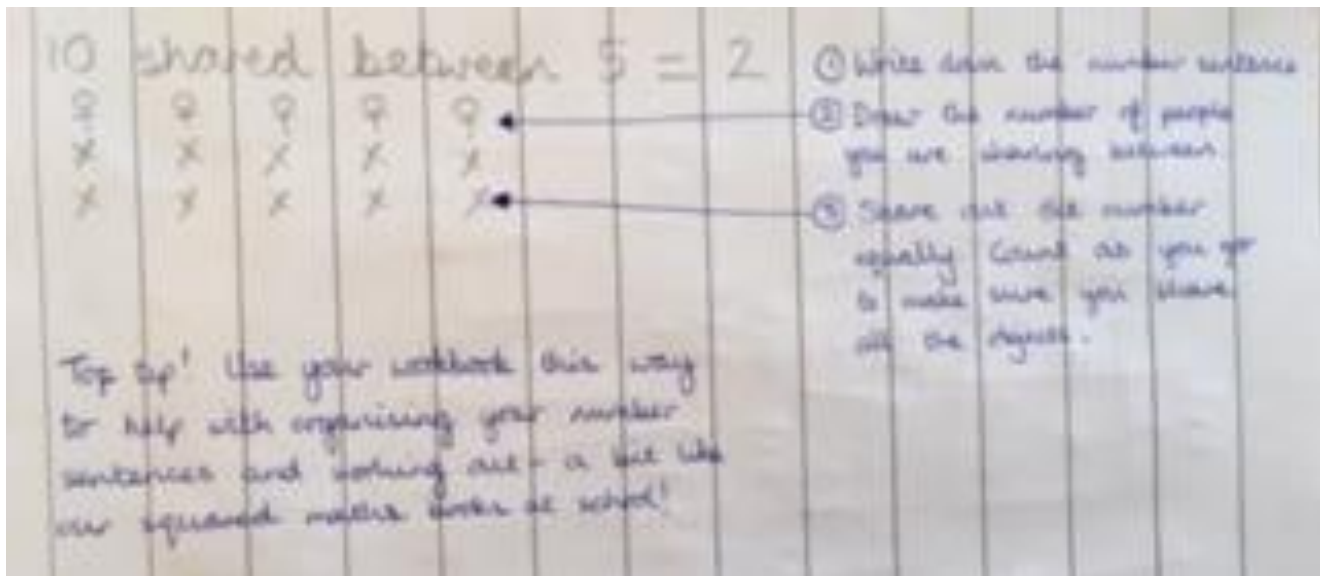 10 shared between 5 = 2
① Write down the number sentence
② Draw the number of people
you are sharing between
③ Share out the number
equally Count as you go
to make sure you share
all the objects.
Top tip! Use your workbook this way
to help with organising your number
sentences and working out - a bit like
our squared maths books at school!